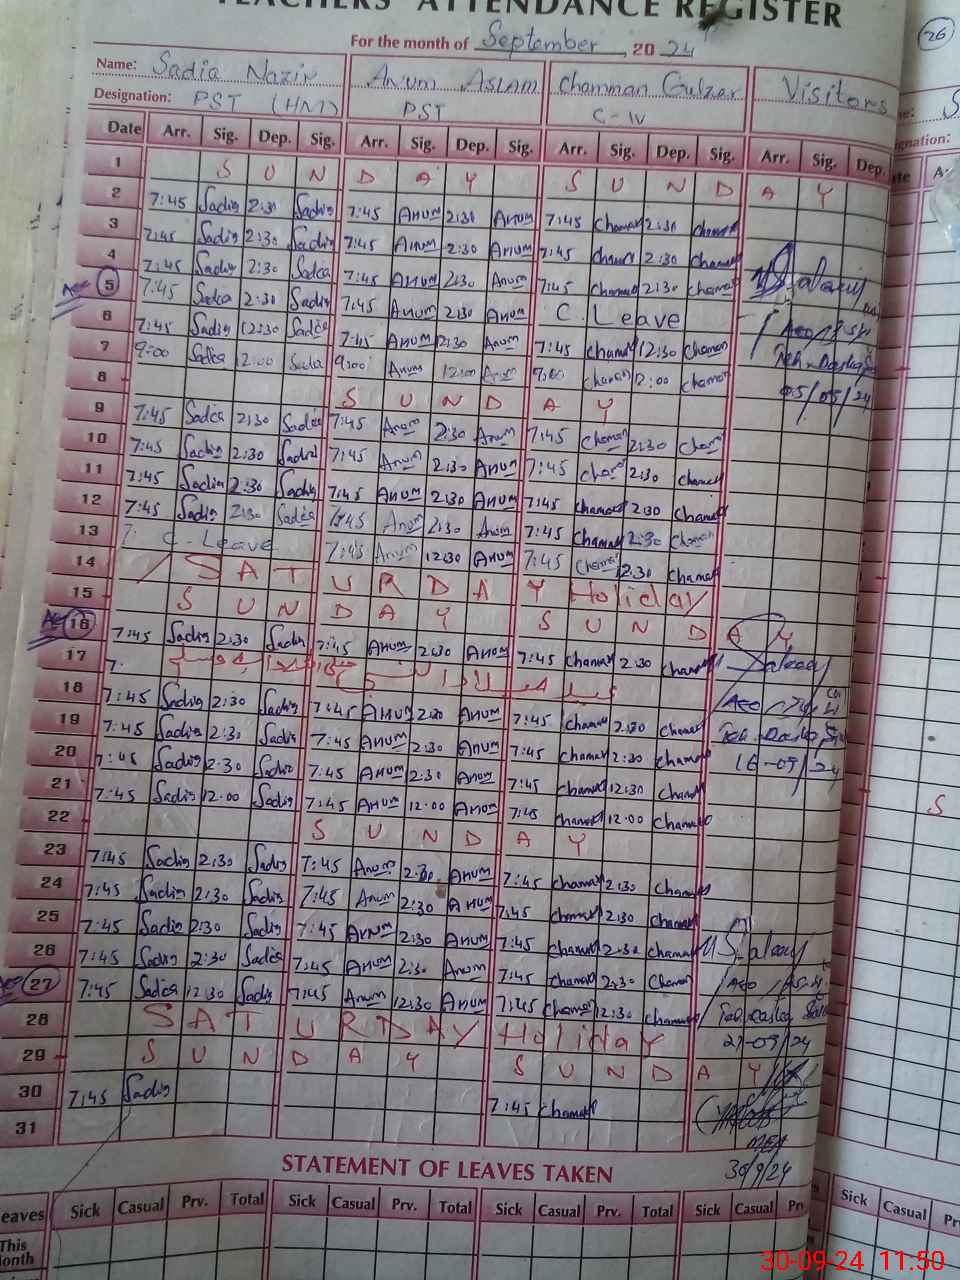 TEACHERS' ATTENDANCE REGISTER
For the month of September, 2024
26
Name: Sadia Nazir Anum Aslam Chamman Gulzar Visitors
Designation: PST (HM) PST C-IV
Date Arr. Sig. Dep. Sig. Arr. Sig. Dep. Sig. Arr. Sig. Dep. Sig. Arr. Sig. Dep.
1 S U N D A Y S U N D A Y
2 7:45 Sadia 2:30 Sadia 7:45 Anum 2:30 Anum 7:45 Chaman 2:30 Chaman
3 7:45 Sadia 2:30 Sadia 7:45 Anum 2:30 Anum 7:45 Chaman 2:30 Chaman
4 7:45 Sadia 2:30 Sadia 7:45 Anum 2:30 Anum 7:45 Chaman 2:30 Chaman
5 7:45 Sadia 2:30 Sadia 7:45 Anum 2:30 Anum C. Leave
6 7:45 Sadia 12:30 Sadia 7:45 Anum 2:30 Anum 7:45 Chaman 12:30 Chaman
7 9:00 Sadia 12:00 Sadia 9:00 Anum 12:00 Anum 9:00 Chaman 12:00 Chaman
05/09/24
8 S U N D A Y
9 7:45 Sadia 2:30 Sadia 7:45 Anum 2:30 Anum 7:45 Chaman 2:30 Chaman
10 7:45 Sadia 2:30 Sadia 7:45 Anum 2:30 Anum 7:45 Chaman 2:30 Chaman
11 7:45 Sadia 2:30 Sadia 7:45 Anum 2:30 Anum 7:45 Chaman 2:30 Chaman
12 7:45 Sadia 2:30 Sadia 7:45 Anum 2:30 Anum 7:45 Chaman 2:30 Chaman
13 C. Leave 7:45 Anum 12:30 Anum 7:45 Chaman 12:30 Chaman
14 S A T U R D A Y Holiday
15 S U N D A Y S U N D A Y
16 7:45 Sadia 2:30 Sadia 7:45 Anum 2:30 Anum 7:45 Chaman 2:30 Chaman
17
18 7:45 Sadia 2:30 Sadia 7:45 Anum 2:30 Anum 7:45 Chaman 2:30 Chaman
19 7:45 Sadia 2:30 Sadia 7:45 Anum 2:30 Anum 7:45 Chaman 2:30 Chaman
16-09/24
20 7:45 Sadia 2:30 Sadia 7:45 Anum 2:30 Anum 7:45 Chaman 12:30 Chaman
21 7:45 Sadia 12:00 Sadia 7:45 Anum 12:00 Anum 7:45 Chaman 12:00 Chaman
22 S U N D A Y
23 7:45 Sadia 2:30 Sadia 7:45 Anum 2:30 Anum 7:45 Chaman 2:30 Chaman
24 7:45 Sadia 2:30 Sadia 7:45 Anum 2:30 Anum 7:45 Chaman 2:30 Chaman
25 7:45 Sadia 2:30 Sadia 7:45 Anum 2:30 Anum 7:45 Chaman 2:30 Chaman
26 7:45 Sadia 2:30 Sadia 7:45 Anum 2:30 Anum 7:45 Chaman 2:30 Chaman
27 7:45 Sadia 12:30 Sadia 7:45 Anum 12:30 Anum 7:45 Chaman 12:30 Chaman
28 S A T U R D A Y Holiday
27-09/24
29 S U N D A Y S U N D A Y
30 7:45 Sadia 7:45 Chaman
31
30/9/24
STATEMENT OF LEAVES TAKEN
Leaves Sick Casual Prv. Total Sick Casual Prv. Total Sick Casual Prv. Total Sick Casual Sick Casual
This Month
30-09-24 11:50